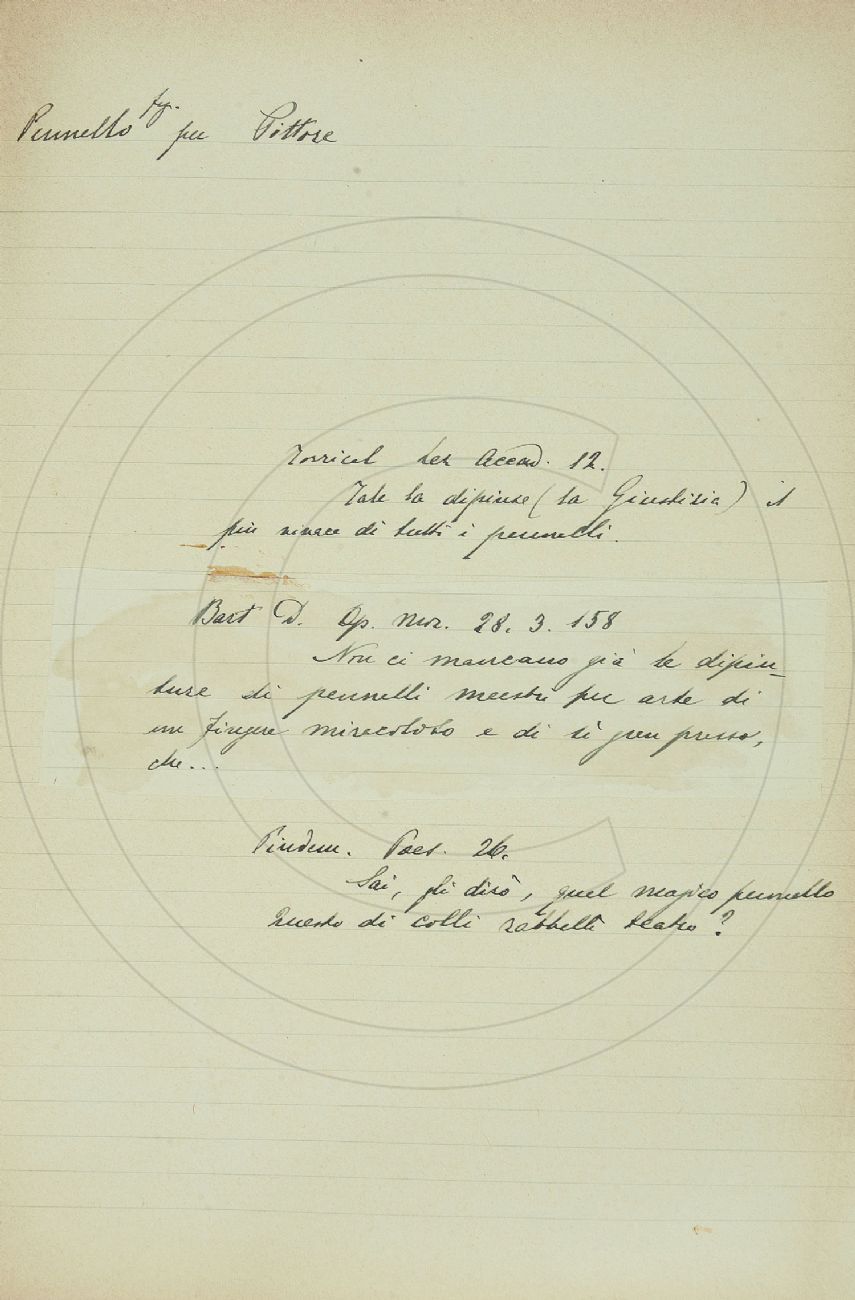 Pennello fig. per Pittore
Torricel Lez Accad. 12.
Tale la dipinse (la Giustizia) il
più vivace di tutti i pennelli.
Bart D. Op. Mor. 28. 3. 158
Non ci mancano già le dipin-
ture di pennelli maestri per arte di
un fingere miracoloso e di sì gran presso,
che...
Pindem. Poes. 26.
Sai, gli dirò, qual magico pennello
Questo di colli rabbellì teatro?